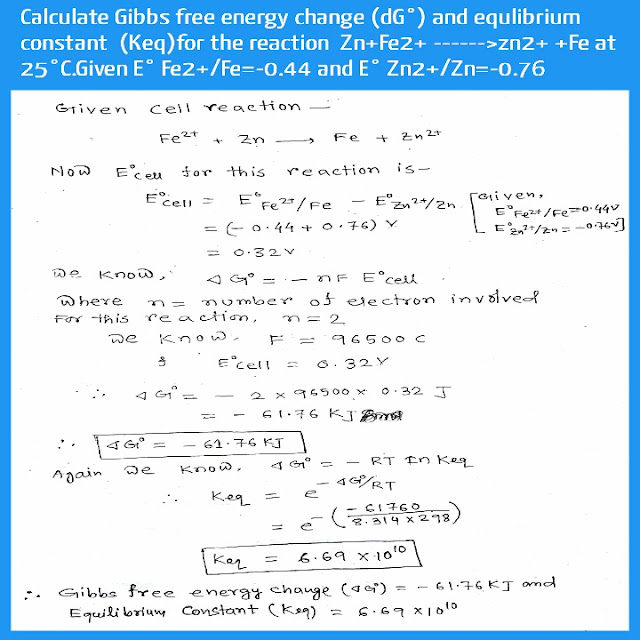 Calculate Gibbs free energy change (dG°) and equlibrium
constant (Keq)for the reaction Zn+Fe2+ ------>zn2+ +Fe at
25°C.Given E° Fe2+/Fe=-0.44 and E° Zn2+/Zn=-0.76
Given cell reaction —
Fe²⁺ + Zn ⟶ Fe + Zn²⁺
Now E°cell for this reaction is—
E°cell = E°Fe²⁺/Fe − E°Zn²⁺/Zn
= (− 0.44 + 0.76) V
= 0.32 V
[Given,
E°Fe²⁺/Fe=0.44V
E°Zn²⁺/Zn = −0.76V]
We know, ΔG° = − nF E°cell
Where n = number of electron involved
For this reaction, n = 2
We know, F = 96500 C
& E°cell = 0.32V
∴ ΔG° = − 2 × 96500 × 0.32 J
= − 61.76 KJ
∴ ΔG° = − 61.76 KJ
Again We know, ΔG° = − RT In Keq
∴ Keq = e^−ΔG°/RT
= e^−(−61760/8.314 × 298)
Keq = 6.69 × 10¹⁰
∴ Gibbs free energy change (ΔG°) = − 61.76 KJ and
Equilibrium Constant (Keq) = 6.69 × 10¹⁰